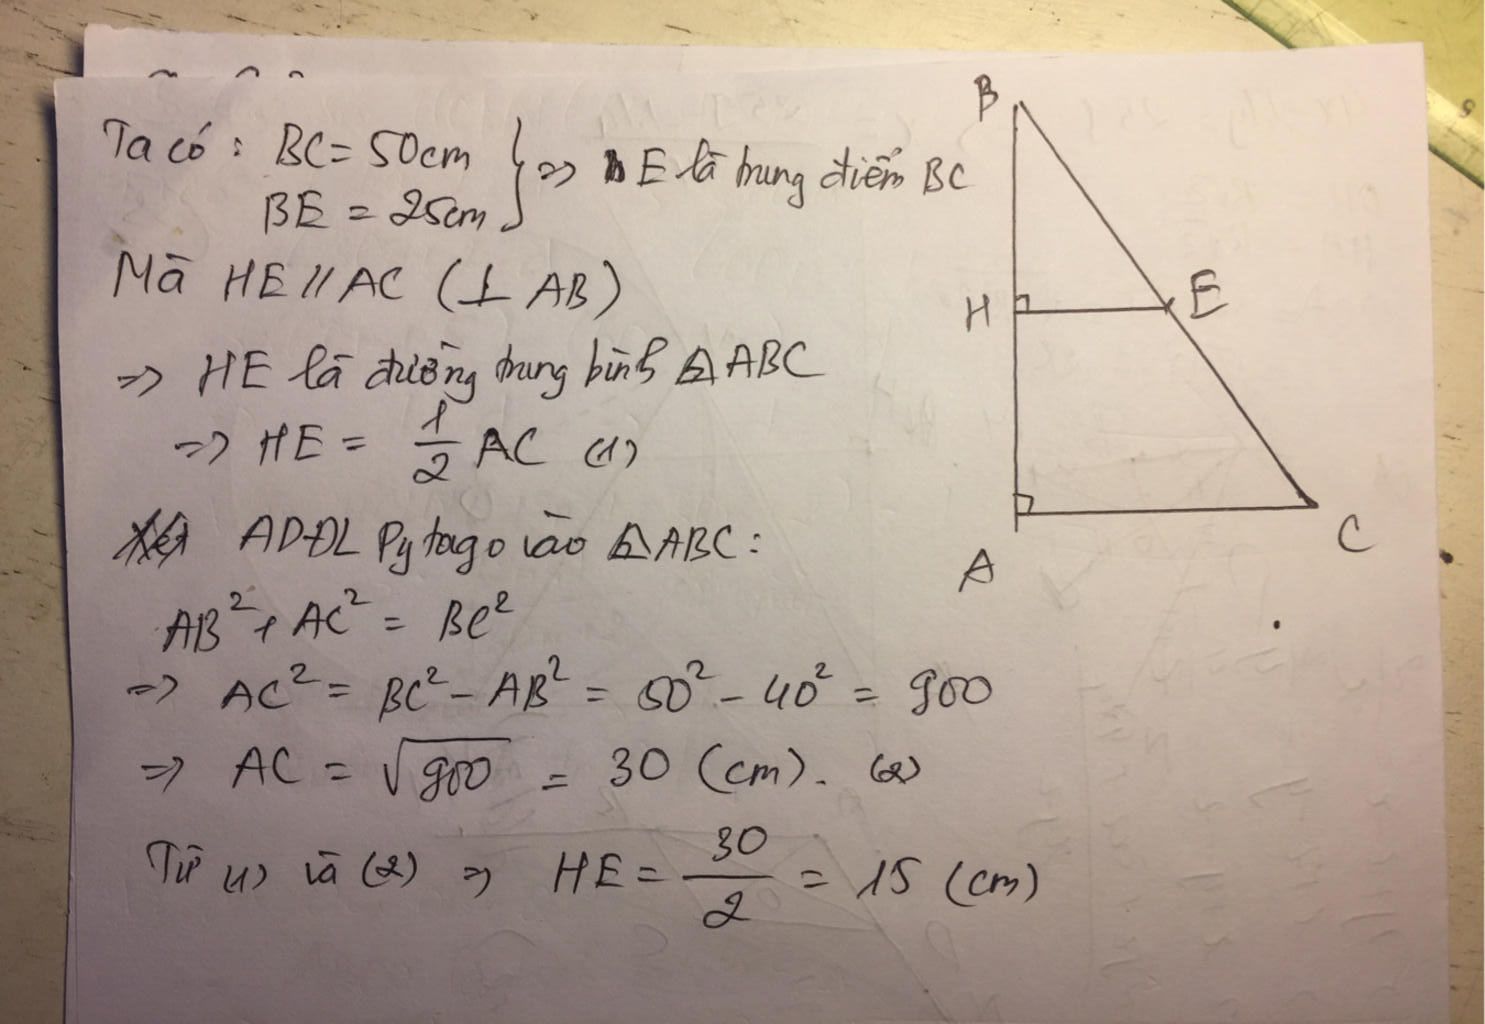 Ta có : BC = 50cm
BE = 25cm } => E là trung điểm BC
Mà HE // AC (⊥ AB)
=> HE là đường trung bình △ABC
=> HE = 1/2 AC (1)
ADĐL Pytago vào △ABC :
AB² + AC² = BC²
=> AC² = BC² - AB² = 50² - 40² = 900
=> AC = √900 = 30 (cm). (2)
Từ (1) và (2) => HE = 30/2 = 15 (cm)
B
H
E
A
C